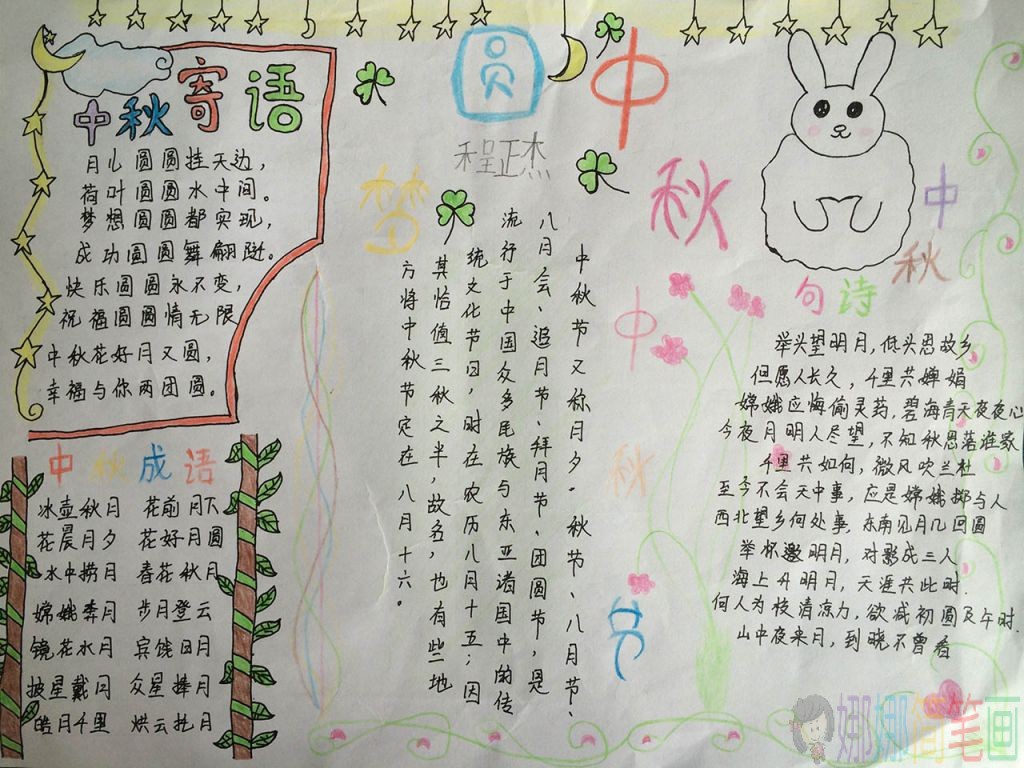 中秋寄语
月儿圆圆挂天边，
荷叶圆圆水中间。
梦想圆圆都实现，
成功圆圆舞翩跹。
快乐圆圆永不变，
祝福圆圆情无限
中秋花好月又圆，
幸福与你两团圆。
中秋成语
冰壶秋月 花前月下
花晨月夕 花好月圆
水中捞月 春花秋月
嫦娥奔月 步月登云
镜花水月 宾饯日月
披星戴月 众星捧月
皓月千里 烘云托月
圆
梦
中
秋
程正杰
中秋节又称月夕、秋节、八月节、
八月会、追月节、拜月节、团圆节，是
流行于中国众多民族与东亚诸国中的传
统文化节日，时在农历八月十五；因
其恰值三秋之半，故名，也有些地
方将中秋节定在八月十六。
中
秋
节
中
秋
句诗
举头望明月，低头思故乡
但愿人长久，千里共婵娟
嫦娥应悔偷灵药，碧海青天夜夜心
今夜月明人尽望，不知秋思落谁家
千里共如何，微风吹兰杜
至今不会天中事，应是嫦娥掷与人
西北望乡何处事，东南见月几回圆
举杯邀明月，对影成三人
海上升明月，天涯共此时．
何人为校清凉力，欲减初圆及午时．
山中夜来月，到晓不曾看
娜娜简笔画